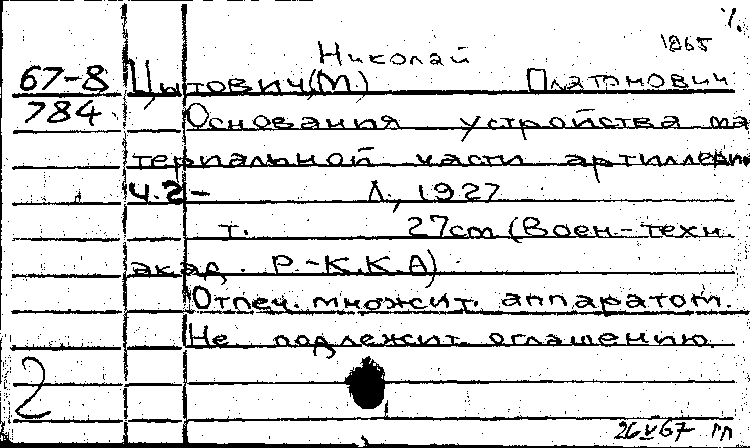 1865
Николай
67-8 Цытович,(М.) Платонович
784 Основания устройства ма
териальной части артиллерии
ч.2- Л., 1927
т. 27cm (Воен-техн.
акад. Р.-К.К.А)
Отпеч. множит. аппаратом.
Не подлежит оглашению
2
26 V 67